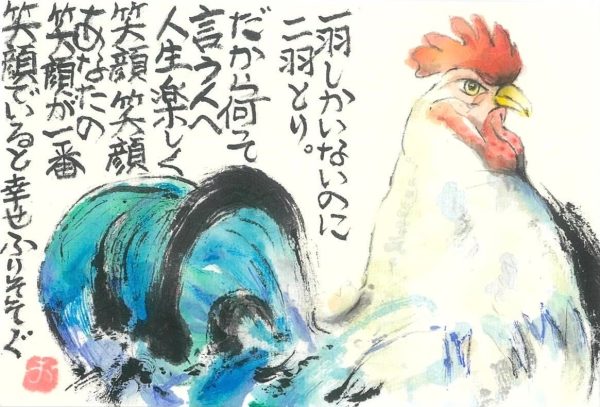 一羽しかいないのに
二羽とり。
だから何って
言う人へ
人生楽しく
笑顔笑顔
あなたの
笑顔が一番
笑顔でいると幸せふりそそぐ